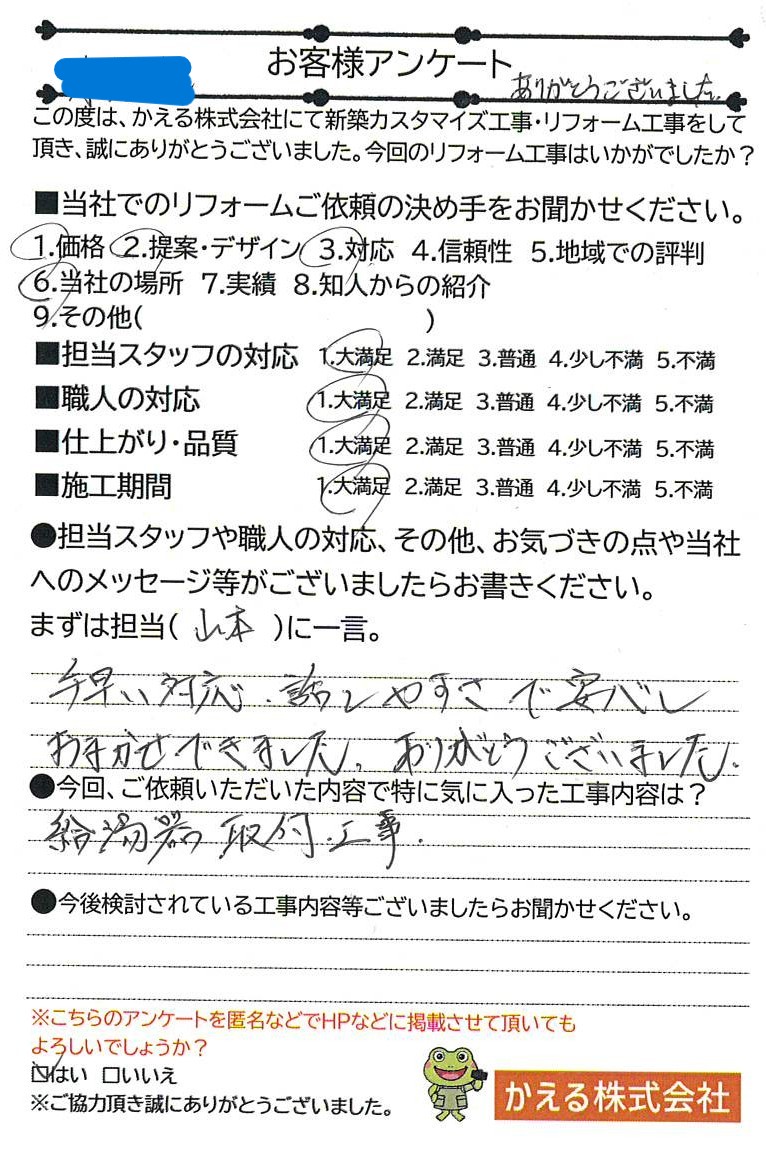 お客様アンケート
ありがとうございました。
この度は、かえる株式会社にて新築カスタマイズ工事・リフォーム工事をして
頂き、誠にありがとうございました。今回のリフォーム工事はいかがでしたか？
■当社でのリフォームご依頼の決め手をお聞かせください。
1.価格 2.提案・デザイン 3.対応 4.信頼性 5.地域での評判
6.当社の場所 7.実績 8.知人からの紹介
9.その他( )
■担当スタッフの対応 1.大満足 2.満足 3.普通 4.少し不満 5.不満
■職人の対応 1.大満足 2.満足 3.普通 4.少し不満 5.不満
■仕上がり・品質 1.大満足 2.満足 3.普通 4.少し不満 5.不満
■施工期間 1.大満足 2.満足 3.普通 4.少し不満 5.不満
●担当スタッフや職人の対応、その他、お気づきの点や当社
へのメッセージ等がございましたらお書きください。
まずは担当( 山本 )に一言。
手早い対応、話しやすさで安心し
おまかせできました。ありがとうございました。
●今回、ご依頼いただいた内容で特に気に入った工事内容は？
給湯器取付工事.
●今後検討されている工事内容等ございましたらお聞かせください。
※こちらのアンケートを匿名などでHPなどに掲載させて頂いても
よろしいでしょうか？
☑はい □いいえ
※ご協力頂き誠にありがとうございました。
かえる株式会社